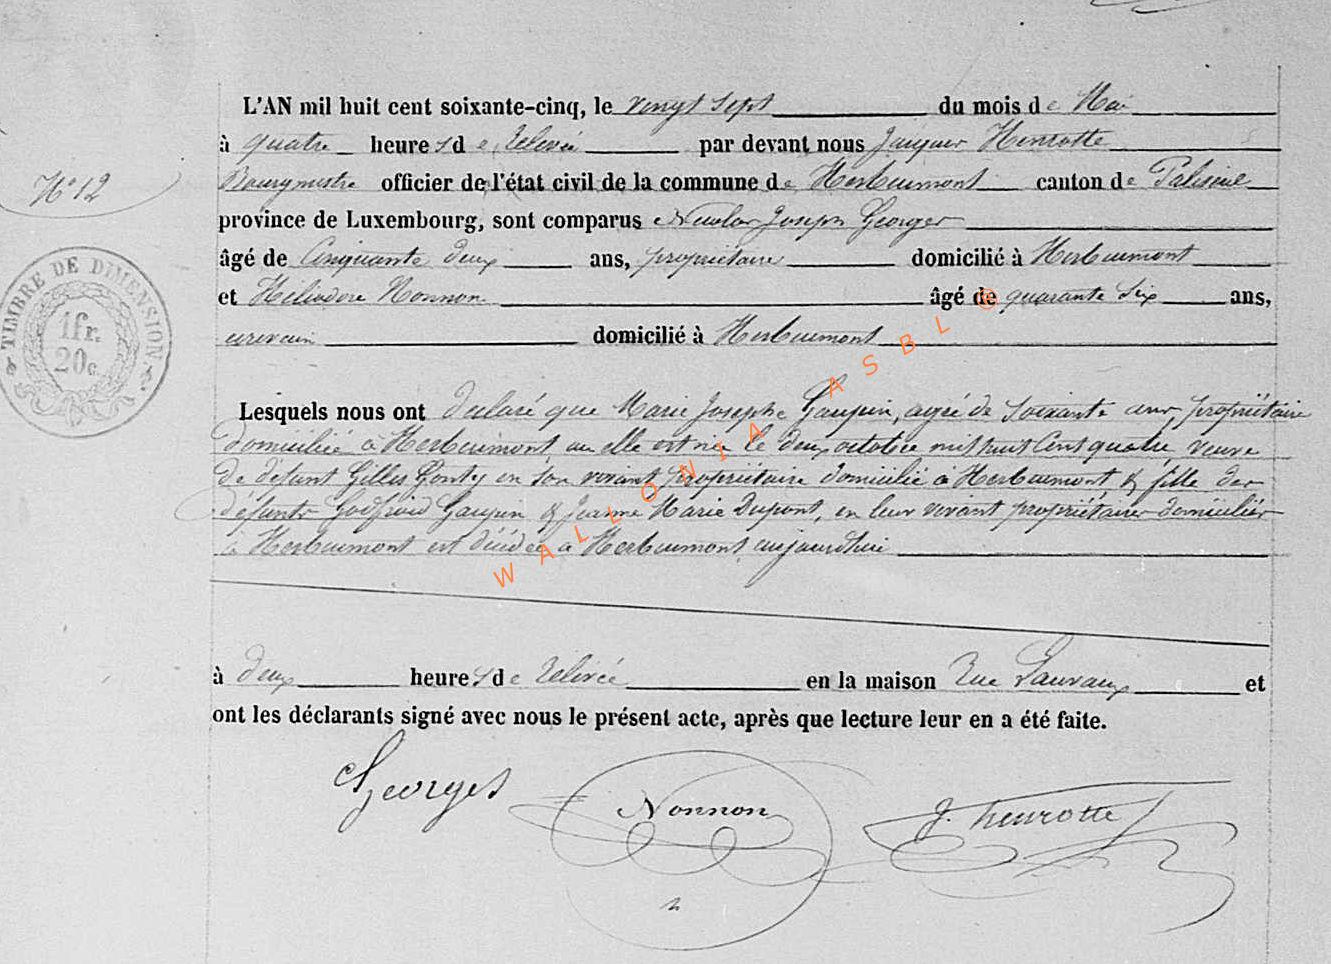 L'AN mil huit cent soixante-cinq, le vingt sept du mois de Mai
à quatre heures de relevée par devant nous Jacques Henrotte
N° 12
Bourgmestre officier de l'état civil de la commune de Herbeumont canton de Paliseul
province de Luxembourg, sont comparus Nicolas Joseph Georges
âgé de Cinquante deux ans, propriétaire domicilié à Herbeumont
TIMBRE DE DIMENSION
1fr.
20c.
et Heliodore Nonnon âgé de quarante Six ans,
domicilié à Herbeumont
Lesquels nous ont declaré que Marie Josephe Gaupin, agée de Soixante ans, propriétaire
domiciliée à Herbeumont, où elle est née le deux octobre mil huit Cent quatre veuve
de defunt Gilles en son vivant propriétaire domicilié à Herbeumont & fille des
défunts Godfroid Gaupin & Jeanne Marie Dupont, en leur vivant propriétaires domiciliés
à Herbeumont est décédée à Herbeumont aujourd'hui
à deux heures de relevée en la maison Rue et
ont les déclarants signé avec nous le présent acte, après que lecture leur en a été faite.
Georges Nonnon J. henrotte
WALLONIA ASBL ©